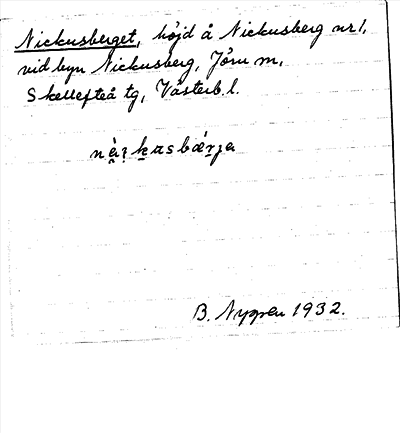 Nickusberget, höjd å Nickusberg nr 1,
vid byn Nickusberg, Jörn sn,
Skellefteå tg, Västerb. l.
B. Nygren 1932.